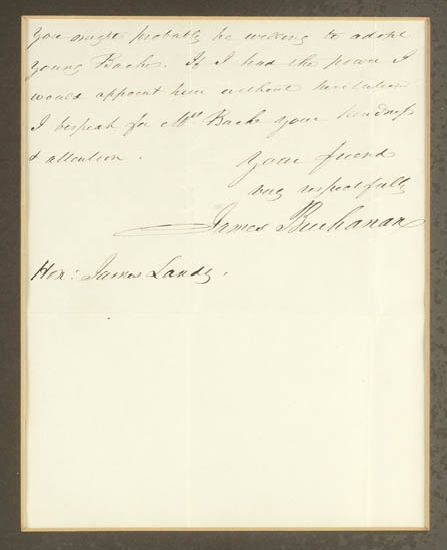 you might probably be willing to adopt
young Bache. If I had the power I
would appoint him without hesitation
I bespeak for Mrs Bache your kindness
& attention.
your friend
very respectfully
James Buchanan
Hon: James Landy.